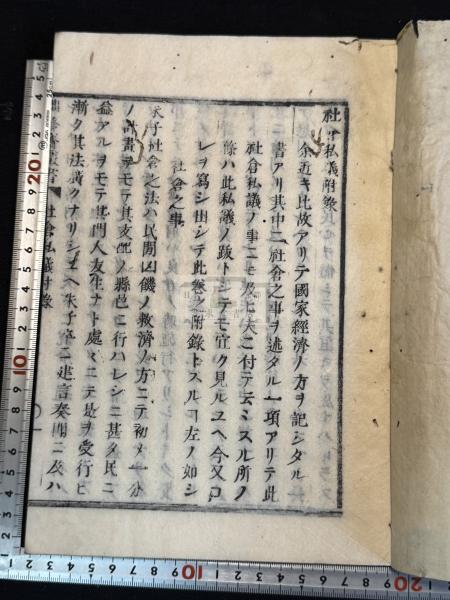 社倉私議附錄
余近キ比故アリテ國家經濟ノ方ヲ記シタル
書アリ其中ニ社倉之事ヲ述タル一項アリテ此
社倉私議ノ事ニモ及ヒ夫ニ付テ云ミスル所ノ
條ハ此私議ノ跋トシテモ宜ク見ルユヘ今又コ
レヲ寫シ出シテ此卷之附錄トスルヿ左ノ如シ
社倉之事
朱子社倉之法ハ民間凶饑ノ救濟ノ方ニテ初メ一分
ノ計畫ヲモテ其支配ノ縣邑ニ行ハレシニ甚タ民ニ
益アルヲモテ其門人友生ナト處々ニテ是ヲ受行ヒ
漸ク其法廣クナリシユヘ朱子卒ニ建言奏聞ニ及ハ
社倉私議附錄